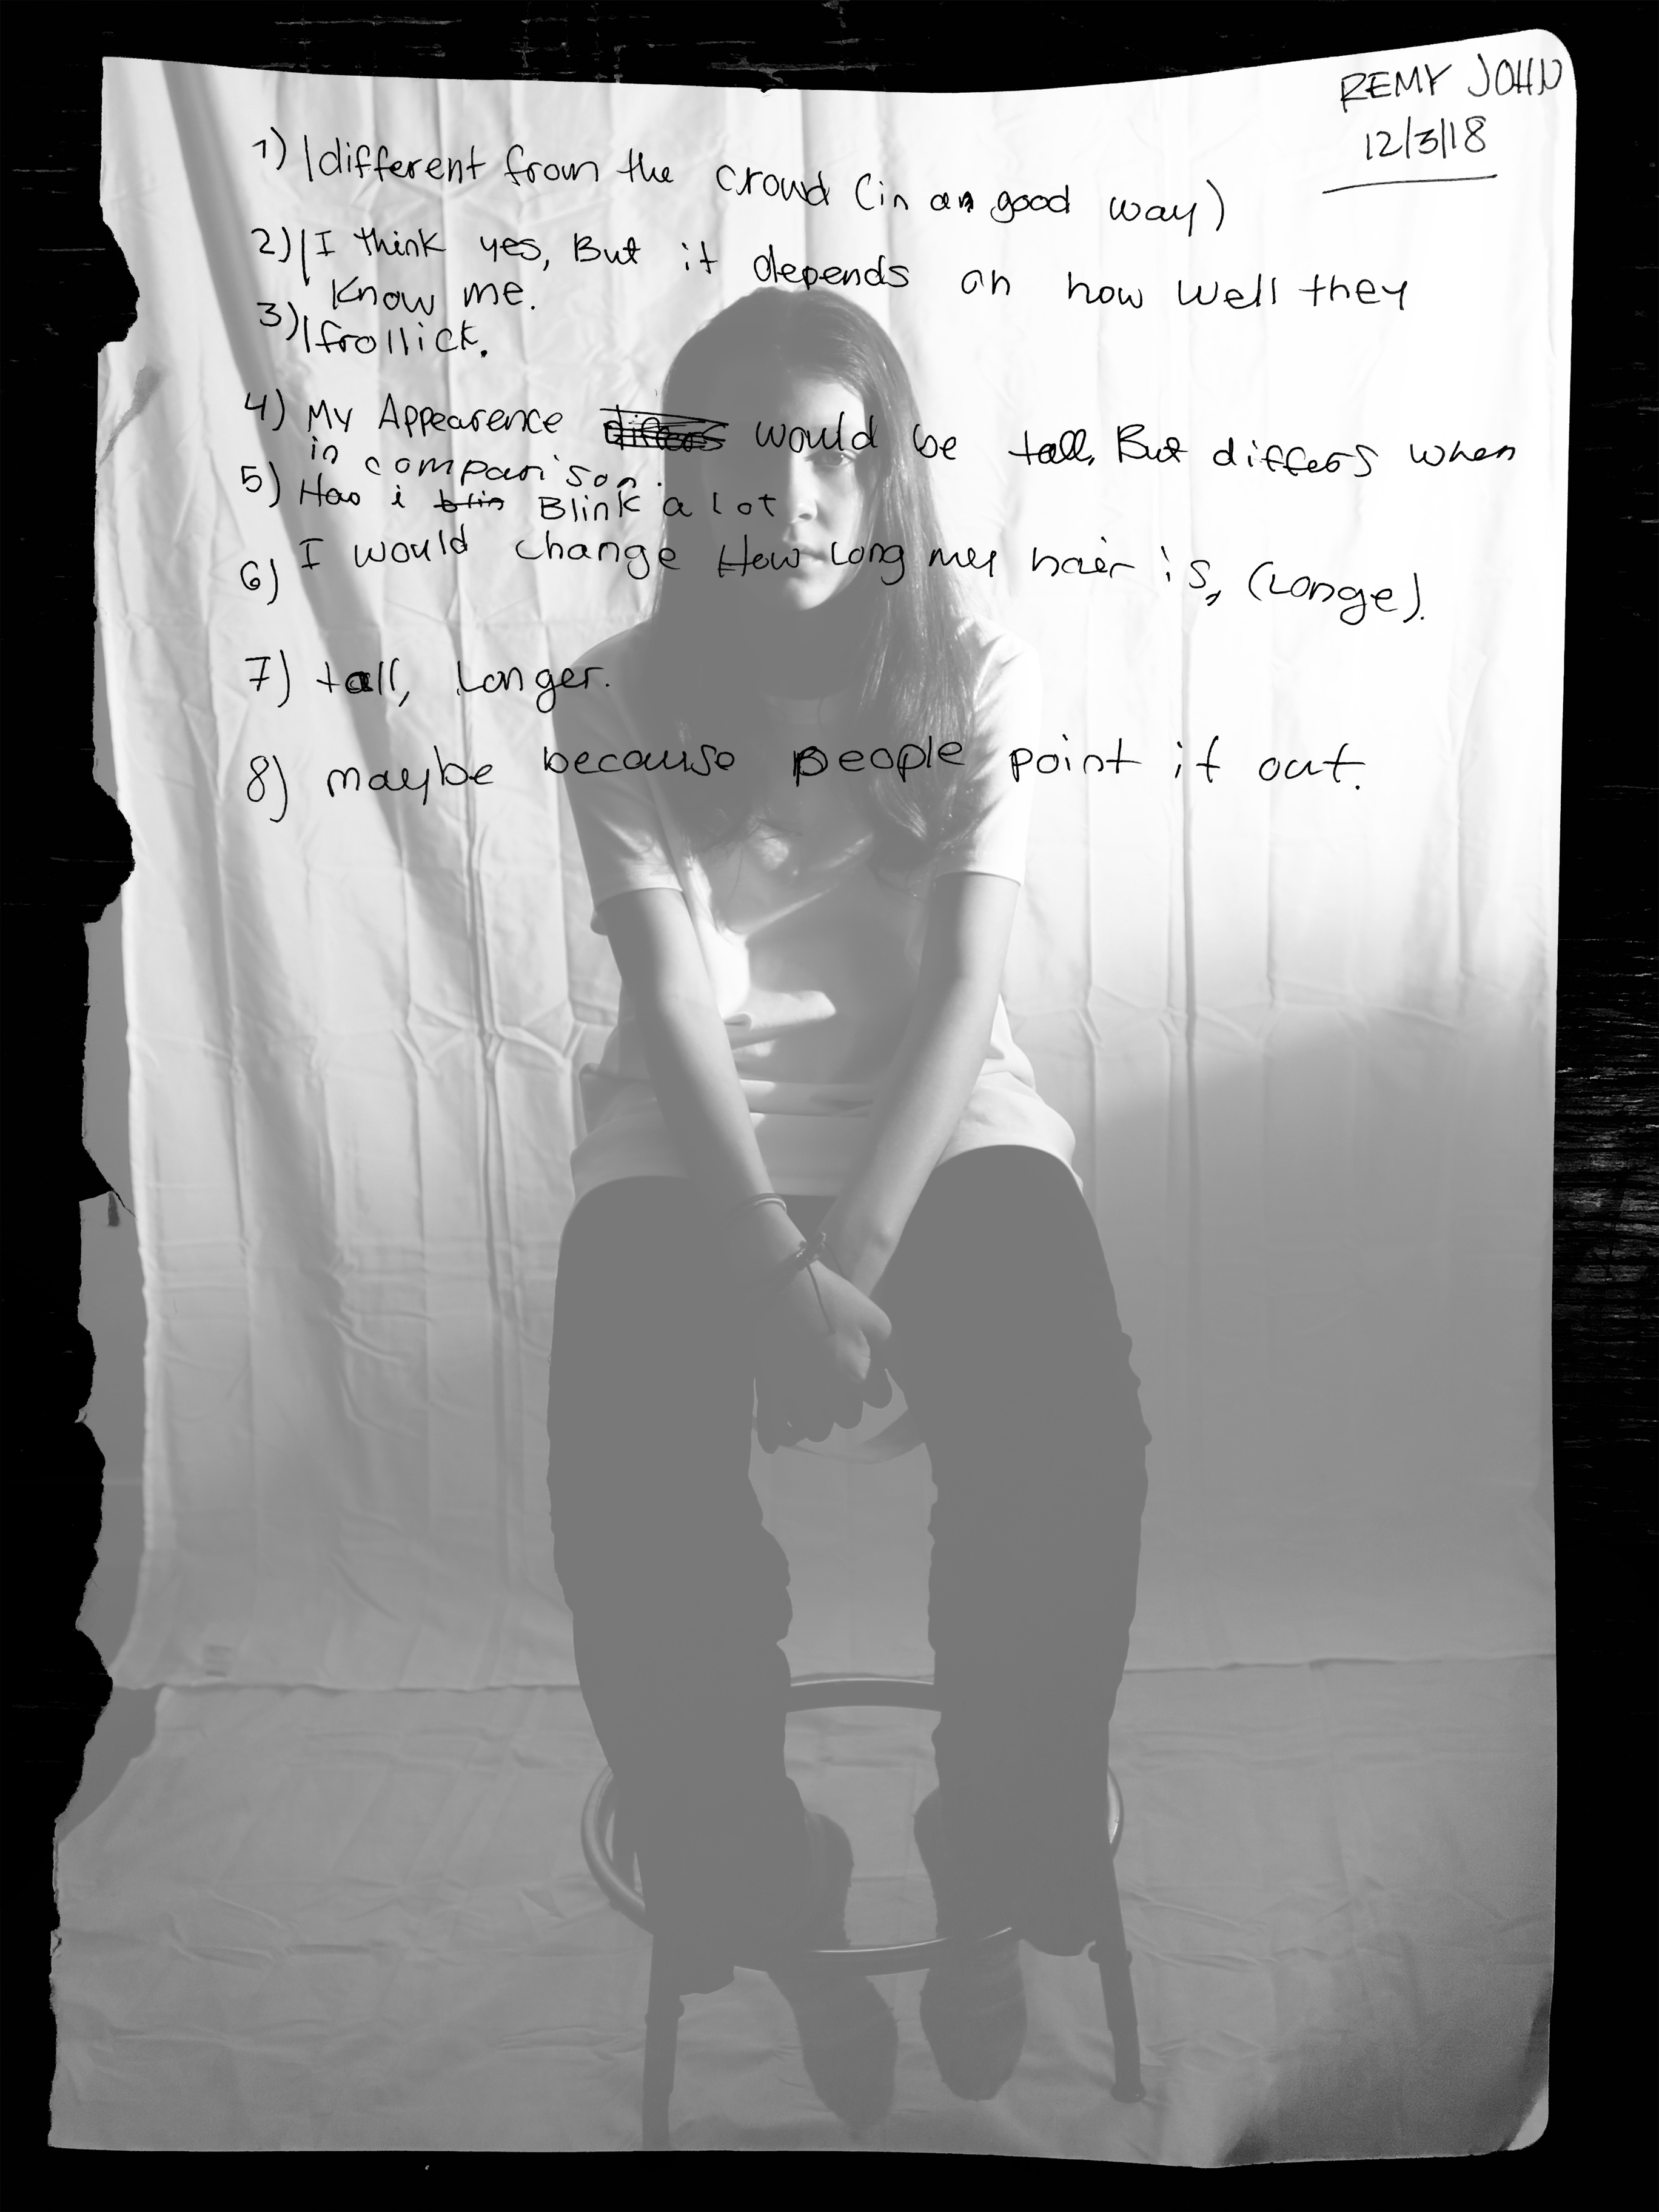 REMY JOHN
12/3/18
1) different from the crowd (in an good way)
2) I think yes, But it depends on how well they
know me.
3) frollick.
4) My Appearence would be tall, But differs when
in comparison.
5) How i blin Blink a lot
6) I would change How long my hair is, (Longe).
7) tall, Longer.
8) maybe because people point it out.